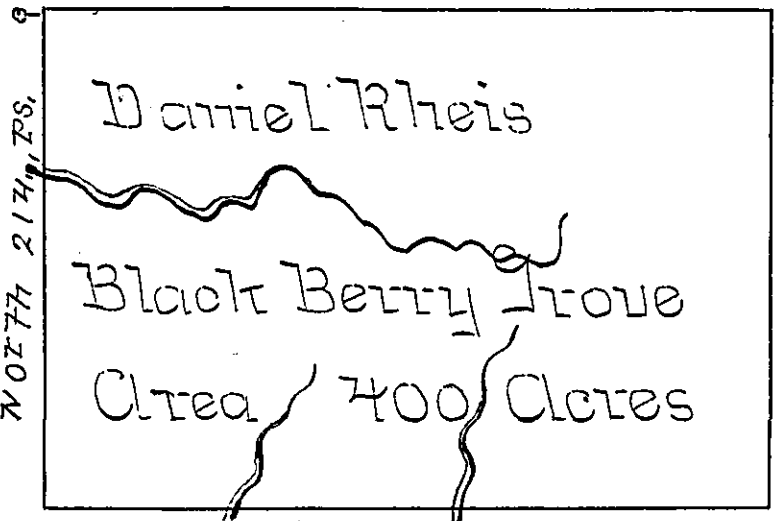 NORTH 214,, PS.
Daniel Rheis
Black Berry Grove
Area 400 Acres